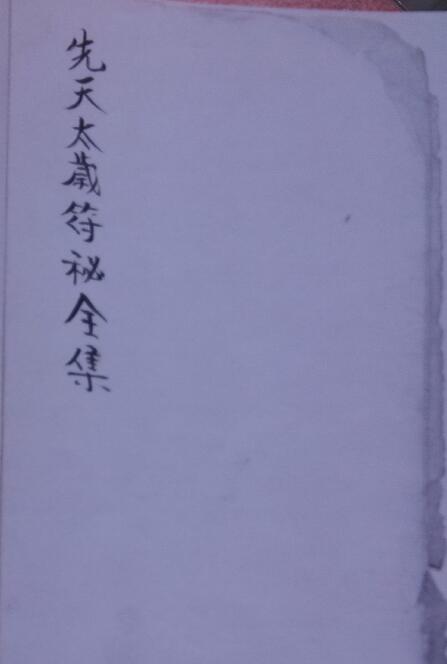 先天太歲符祕全集